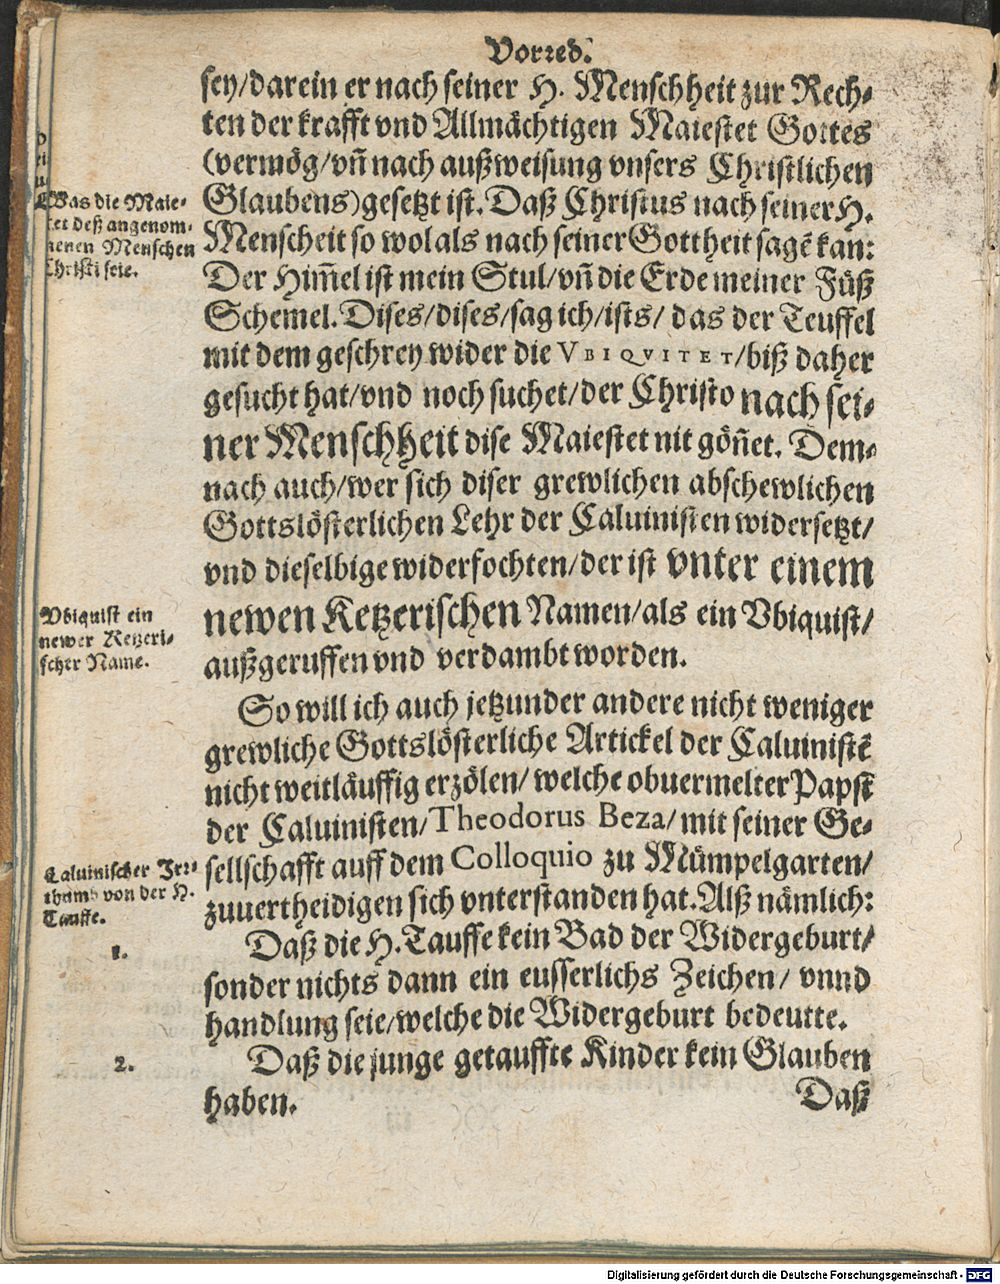 Vorred.
sey/darein er nach seiner H. Menschheit zur Rech-
ten der krafft vnd Allmächtigen Maiestet Gottes
(vermög/vñ nach außweisung vnsers Christlichen
Glaubens)gesetzt ist. Daß Christus nach seiner H.
Menscheit so wol als nach seiner Gottheit sagẽ kan:
Der Him̃el ist mein Stul/vñ die Erde meiner Füß
Schemel. Dises/dises/sag ich/ists/ das der Teuffel
mit dem geschrey wider die VBIQVITET/biß daher
gesucht hat/vnd noch suchet/der Christo nach sei-
ner Menschheit dise Maiestet nit göñet. Dem-
nach auch/wer sich diser grewlichen abschewlichen
Gottslösterlichen Lehr der Caluinisten widersetzt/
vnd dieselbige widerfochten/der ist vnter einem
newen Ketzerischen Namen/als ein Vbiquist/
außgeruffen vnd verdambt worden.
So will ich auch jetzunder andere nicht weniger
grewliche Gottslösterliche Artickel der Caluinistẽ
nicht weitläuffig erzölen/ welche obuermelter Papst
der Caluinisten/Theodorus Beza/mit seiner Ge-
sellschafft auff dem Colloquio zu Mümpelgarten/
zuuertheidigen sich vnterstanden hat. Alß nämlich:
Daß die H. Tauffe kein Bad der Widergeburt/
sonder nichts dann ein eusserlichs Zeichen/ vnnd
handlung seie/welche die Widergeburt bedeutte.
Daß die junge getauffte Kinder kein Glauben
haben.
Daß
Was die Maie-
tet deß angenom-
nenen Menschen
Christi seie.
Vbiquist ein
newer Ketzeri-
scher Name.
Caluinischer Irr-
thumb von der H.
Tauffe.
1.
2.
Digitalisierung gefördert durch die Deutsche Forschungsgemeinschaft - DFG